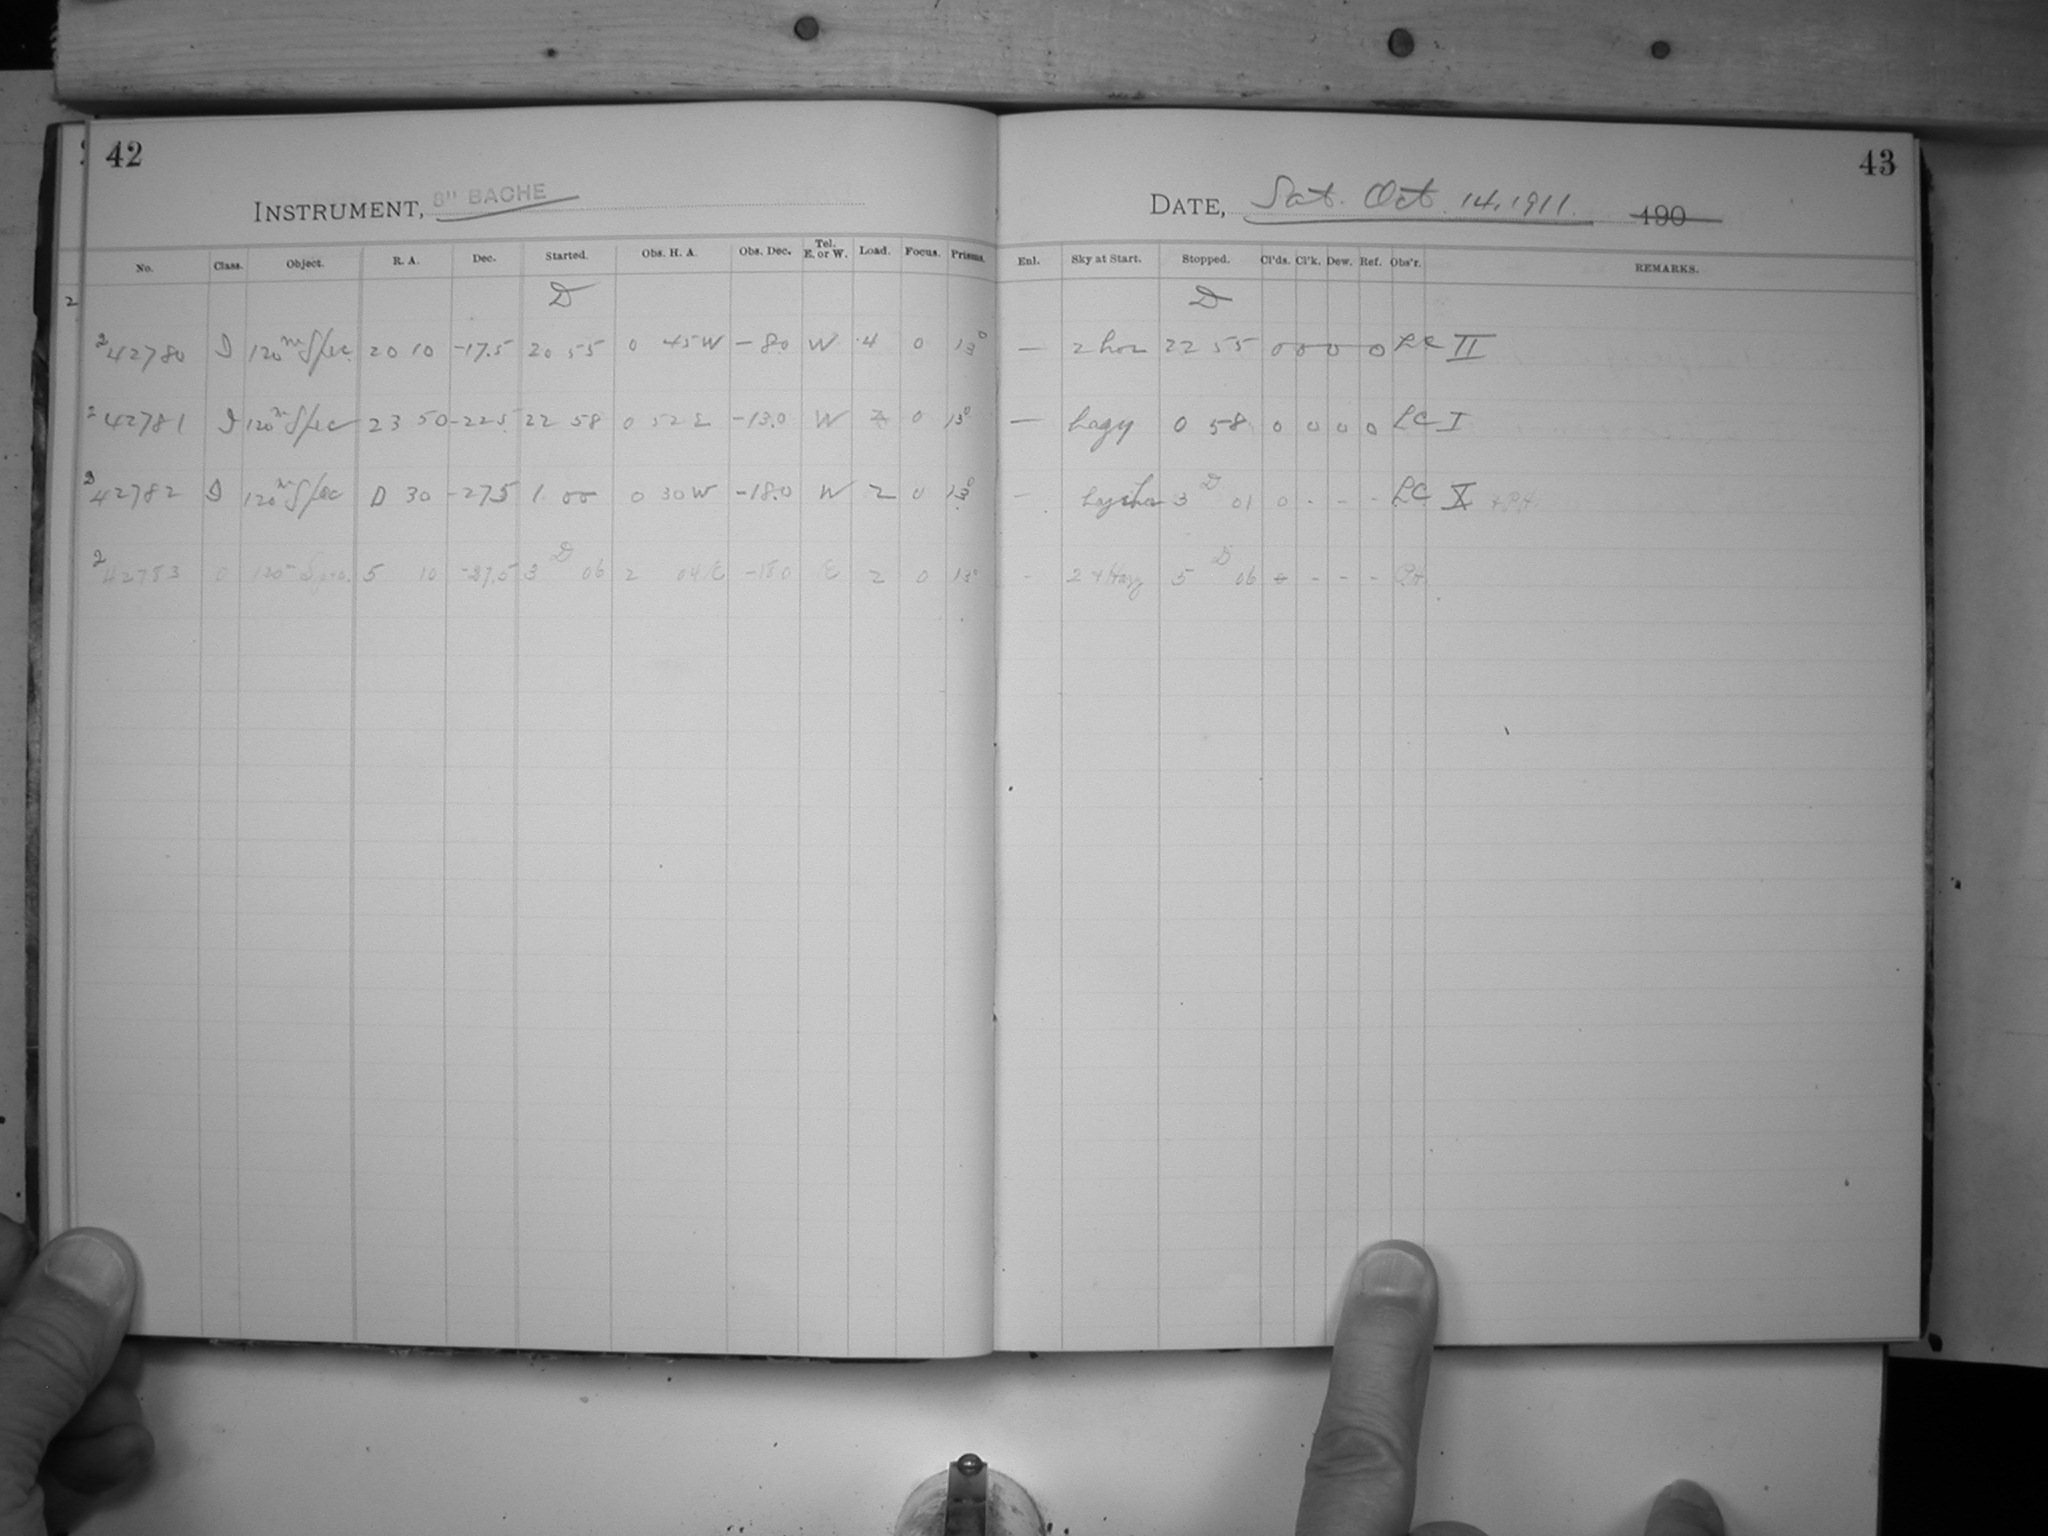 42
43
INSTRUMENT, 8" BACHE
DATE, Sat. Oct. 14, 1911. 190
No. Class. Object. R. A. Dec. Started. Obs. H. A. Obs. Dec. Tel. E. or W. Load. Focus. Prisms. Enl. Sky at Start. Stopped. Cl'ds. Cl'k. Dew. Ref. Obs'r. REMARKS.
2 D D
2 42780 D 120m Spec. 20 10 -17.5 20 55 0 45 W -8.0 W 4 0 13° — 2 hor 22 55 0 0 0 0 LC II
2 42781 D 120m Spec 23 50 -22.5 22 58 0 52 E -13.0 W 2 0 13° — hazy 0 58 0 0 0 0 LC I
2 42782 D 120m Spec 0 30 -27.5 1 00 0 30 W -18.0 W 2 0 13° - 3 D 01 0 - - - LC
2 42783 120m Spec. 5 10 -27.5 3 D 06 2 04 E -18.0 E 2 0 13° - 2 + Hazy 5 D 06 - - -